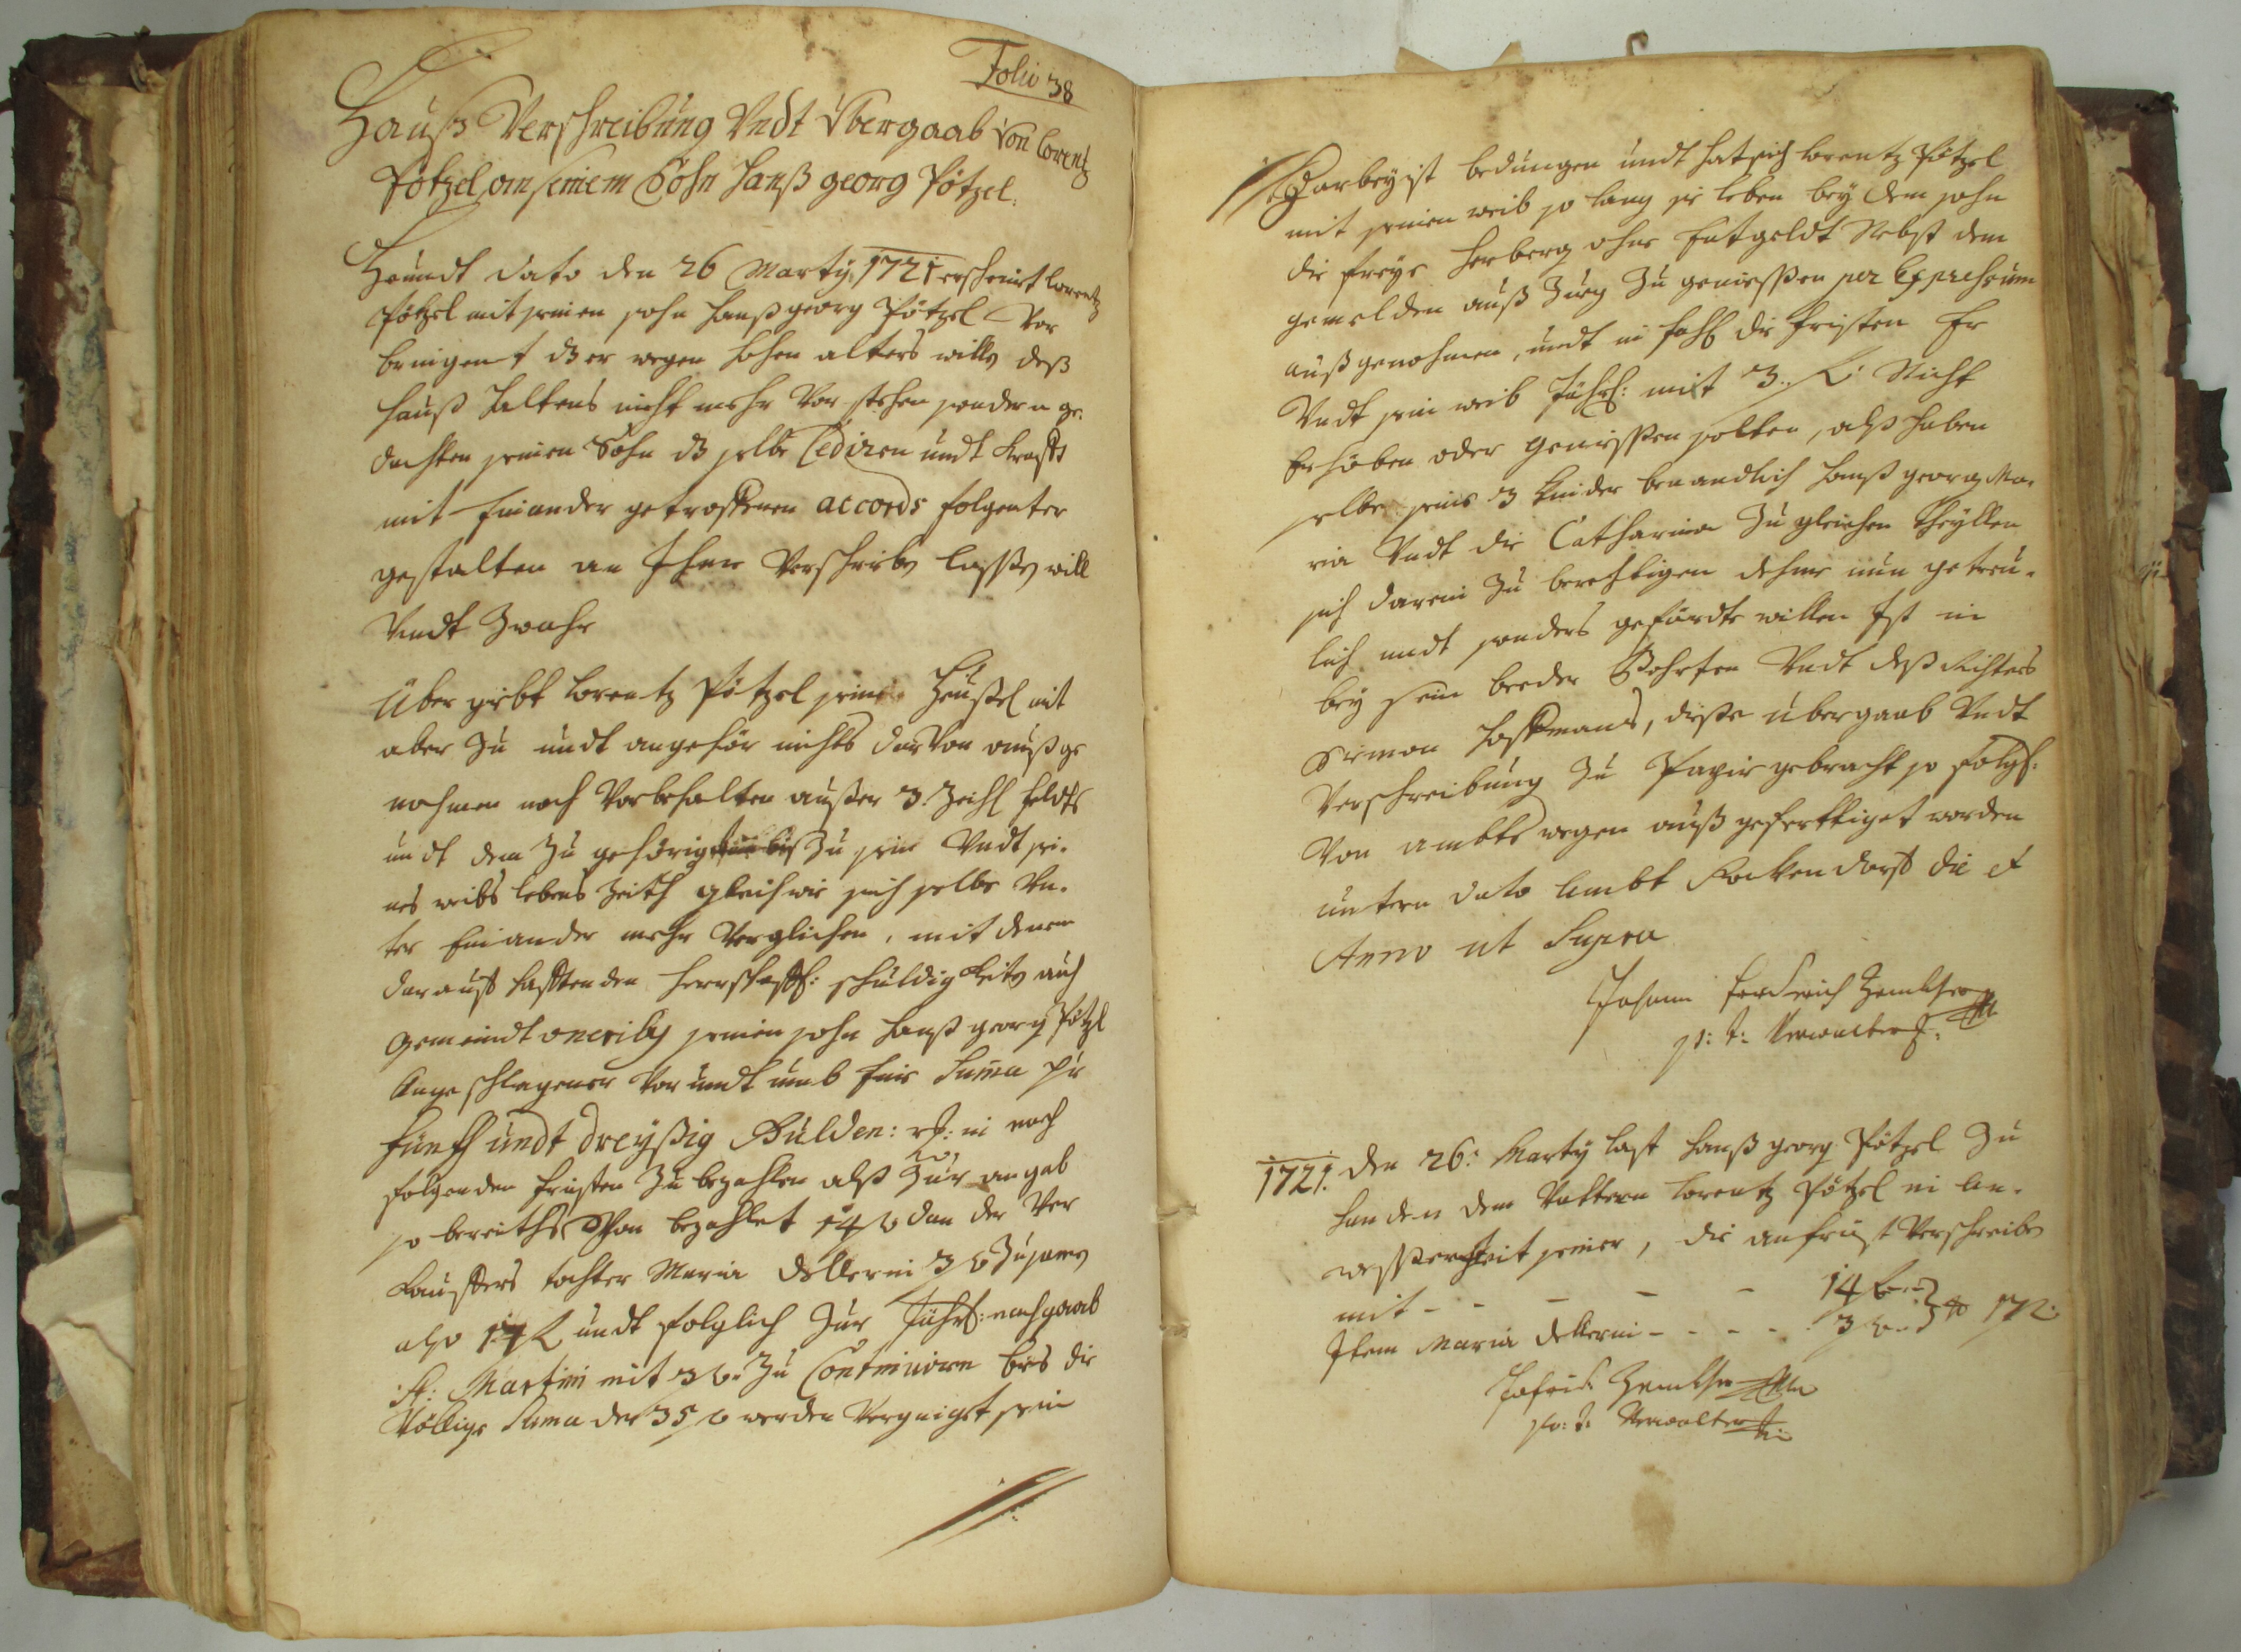 Folio 38
Hauß Verschreibung Undt Übergaab Von Lorentz
Pötzel an seinem Sohn Hanß Georg Pötzel.
Heundt dato den 26 Marty 1721 erscheint Lorentz
Pötzel mit seinen sohn Hanß Georg Pötzel Vor
bringent dz er wegen hohen alters willen deß
hauß haltens nicht mehr Vor stehen sondern ge.
dachten seinen Sohn dz selbe Cediren undt krafft
mit Einander getroffenen accords folgenter
gestalten an Ihme Verschreiben lassen will
Undt Zwahr
Über giebt Lorentz Pötzel seine Heußel mit
aber Zu undt angehör nichts darVon auß ge
nohmen noch Vorbehalten ausser 3. Zeihl feldts
undt dem Zu gehörig biß Zu sein Undt sei.
nes weibs lebens Zeith gleich wie sich selbe Un.
ter Einander mehr Verglichen, mit denen
darauff hafftenden herrschafftl: schuldigkeiten auch
Gemeindt oneriby seinen sohn Hanß Georg Pötzl
Angeschlagener Vor undt umb Eine Summa pr
fünff undt dreyßig Gulden: rh: in nach
folgenden fristen Zu bezahlen alß Zur angab
so bereiths Schon bezahlet 14 fl dan der Ver
kauffers tochter Maria Dellerin 3 fl Zusamen
also 17 fl undt folglich Zur Jährl: nachgaab
St: Martini mit 3 fl. Zu Continuiren bies die
Völlige Suma der 35 fl werden Vergnigt sein
Darbey ist bedungen undt hat sich Lorentz Pötzel
mit seinen weib so lang sie leben bey dem sohn
die freye herberg ohne Entgeldt Nebst dem
gemelden auß Zug Zu geniessen per Expressum
außgenohmen, undt in fahl die fristen Er
Undt sein weib Jährl: mit 3. fl. Nicht
Erhöben oder genissen solten, alß haben
selbe seine 3 Kinder benandlich Hanß Georg Ma.
ria Undt die Catharina Zu gleichen theyllen
sich darein Zu berechtigen dehme nun getreu.
lich undt sonders gefärdte willen Ist in
bey sein beeder Undt deß Richters
Simon Hoffmans, disse übergaab Undt
Verschreibung Zu Papir gebracht so folgl:
Von ambts wegen auß gefertiget worden
untern dato Ambt Rockendorff die et
Anno ut Supra
Johann fridrich
p: t: Verwalter
1721. den 26: Marty last Hanß Georg Pötzel Zu
handen dem Vattern Lorentz Pötzel in An.
wessenheit seiner, die anfrist Verschreiben
mit - - - - - 14 fl
Item Maria Dellerin - - - - 3 fl. 17 fl.
p: t: Verwalter